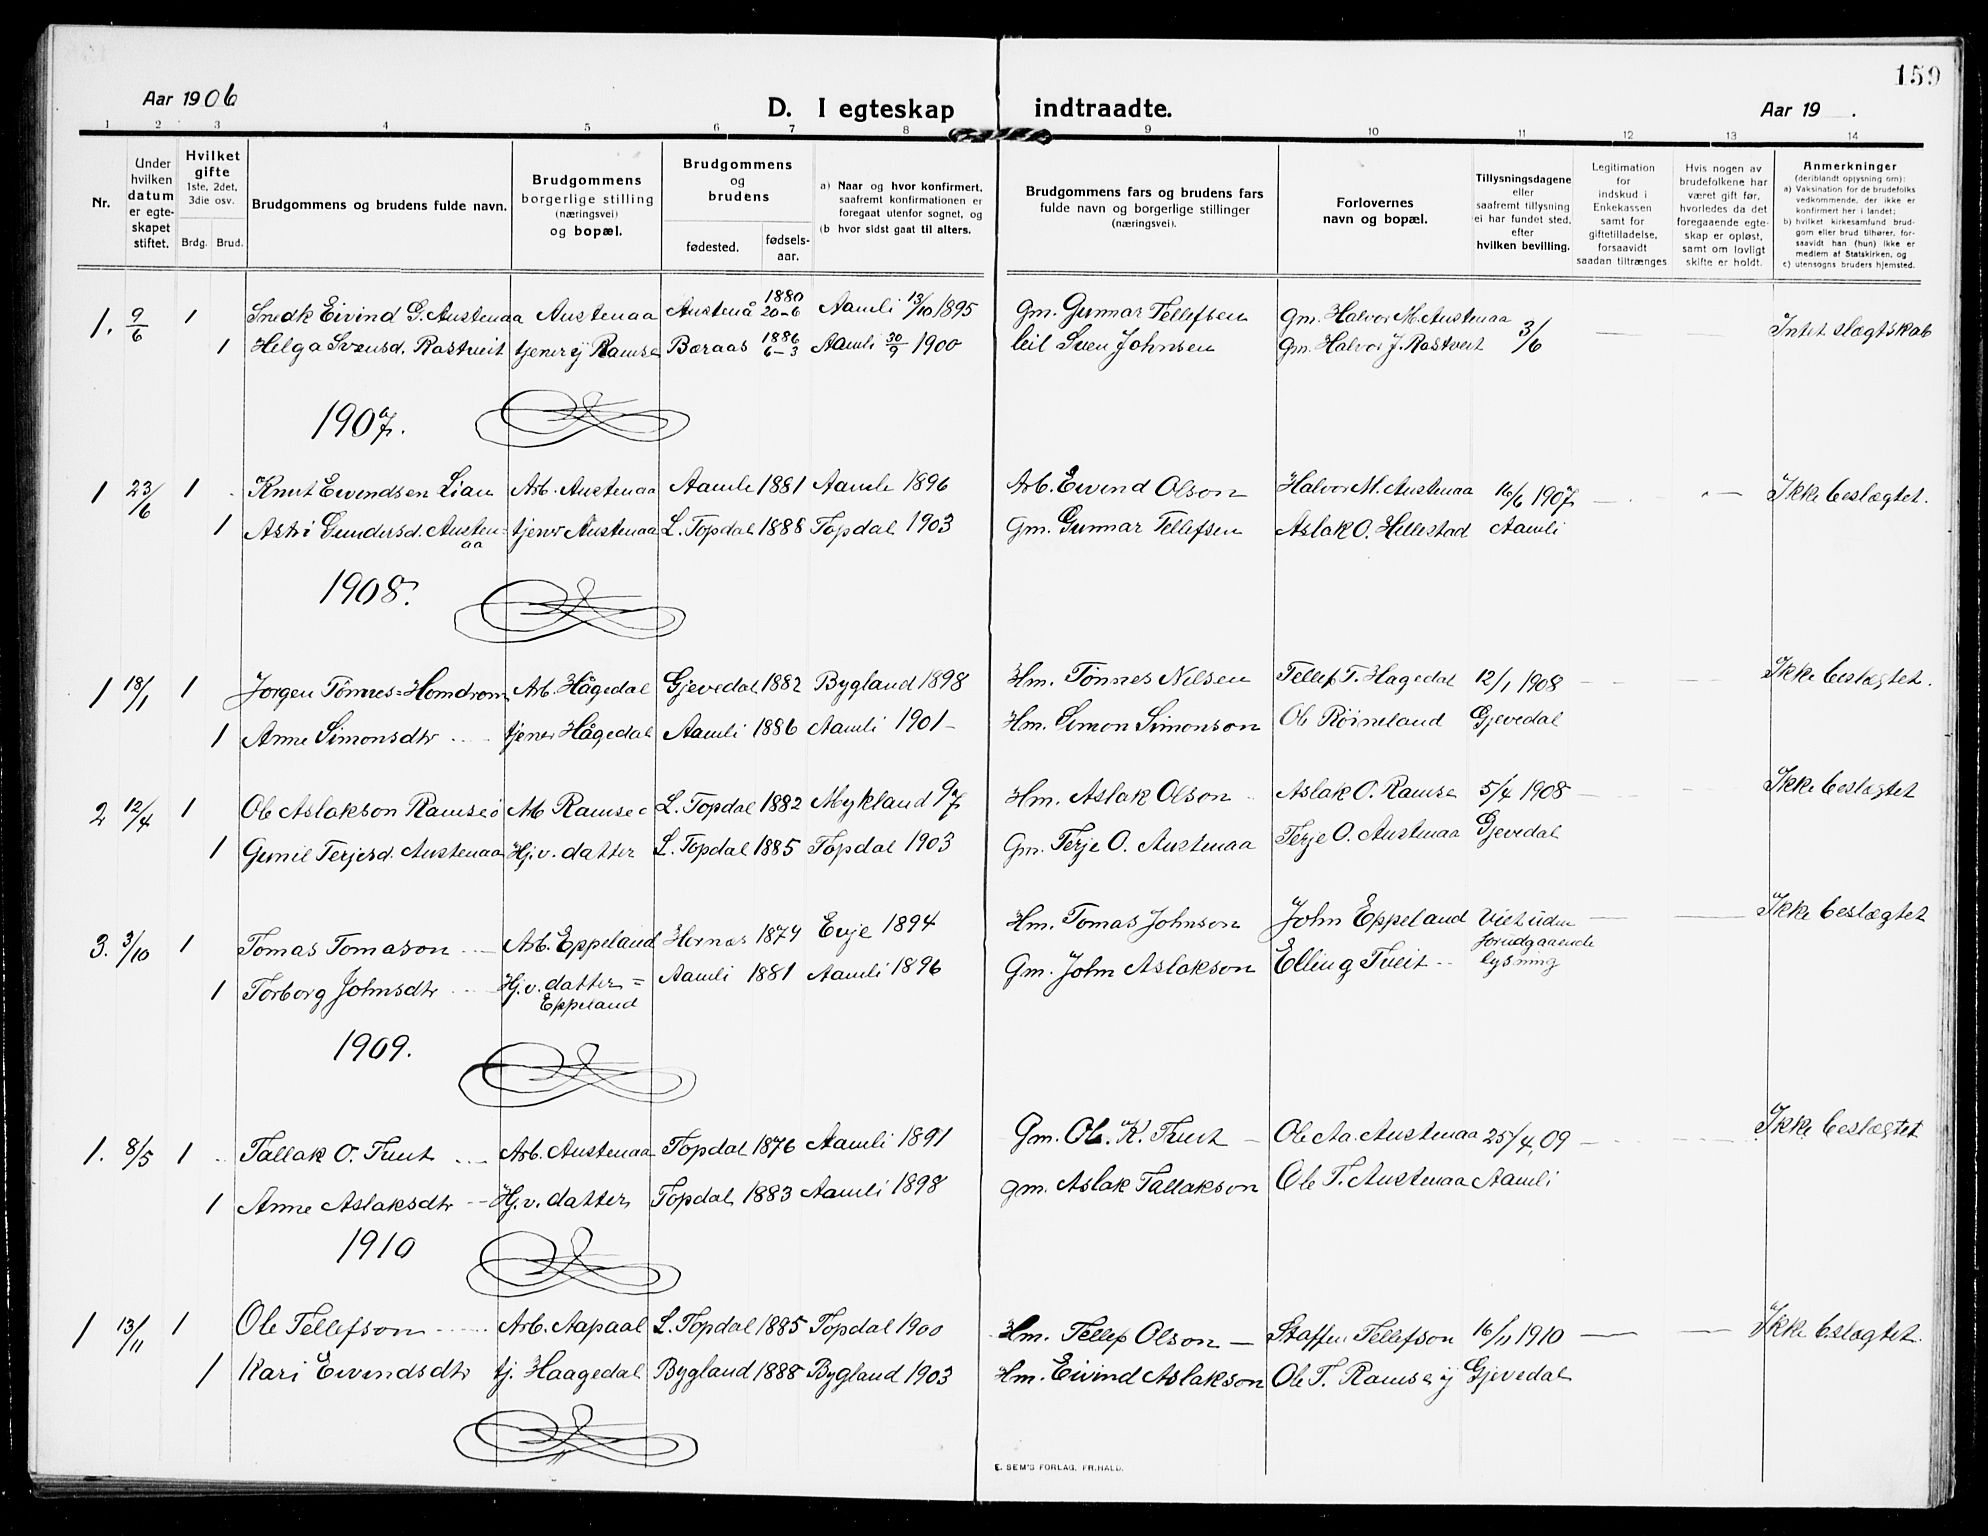 159
Aar 1906
D. I egteskap indtraadte.
Aar 19 .
1 2 3 4 5 6 7 8 9 10 11 12 13 14
Nr.
Under hvilken datum er egteskapet stiftet.
Hvilket gifte 1ste, 2det, 3die osv.
Brdg. Brud.
Brudgommens og brudens fulde navn.
Brudgommens borgerlige stilling (næringsvei) og bopæl.
Brudgommens og brudens
fødested. fødselsaar.
a) Naar og hvor konfirmert, saafremt konfirmationen er foregaat utenfor sognet, og
(b hvor sidst gaat til alters.
Brudgommens fars og brudens fars fulde navn og borgerlige stillinger (næringsvei).
Forlovernes navn og bopæl.
Tillysningsdagene eller saafremt tillysning ei har fundet sted, efter hvilken bevilling.
Legitimation for indskud i Enkekassen samt for giftetilladelse, forsaavidt saadan tiltrænges
Hvis nogen av brudefolkene har været gift før, hvorledes da det foregaaende egteskap er opløst, samt om lovligt skifte er holdt.
Anmerkninger (deriblandt opjysning om):
a) Vaksination for de brudefolks vedkommende, der ikke er konfirmert her i landet;
b) hvilket kirkesamfund brudgom eller brud tilhører, forsaavidt han (hun) ikke er medlem af Statskirken, og
c) utensogns bruders hjemsted.
1. 9/6 1 Snedk Eivind G. Austenaa Austenaa Austenå 1880 20-6 Aamli 13/10 1895 Gm. Gunnar Tellefsen Gm. Halvor M. Austenaa 3/6 — — Intet slægtskab
1 Helga Svensd. Rastveit tjener ij Ramse Bæraas 1886 6-3 Aamli 30/9 1900 Sven Johnsen Gm. Halvor J. Rastveit
1907.
1 23/6 1 Knut Eivendsen Lian Arb. Austenaa Aamli 1881 Aamli 1896 Arb. Eivind Olson Halvor M. Austenaa 16/6 1907 — — Ikke beslægtet.
1 Astri Gundersd. Austenaa tjener Austenaa L. Topdal 1888 Topdal 1903 Gm. Gunnar Tellefsen Aslak O. Hillestad Aamli
1908.
1 18/1 1 Jorgen Tönnes=Homdrom Arb. Hågedal Gjevedal 1882 Bygland 1898 Hm. Tönnes Nilsen Tellef T. Hagedal 12/1 1908 — — Ikke beslægtet.
1 Anne Simonsdtr tjener Hågedal Aamli 1886 Aamli 1901 - Hm. Simon Simonson Ole Röineland Gjevedal
2 12/4 1 Ole Aslakson Ramse Arb Ramse L. Topdal 1882 Mykland 97 Hm. Aslak Olson Aslak O. Ramse 5/4 1908 — — Ikke beslægtet
1 Gunil Terjesd. Austenaa Hj.v. datter L. Topdal 1885 Topdal 1903 Gm. Terje O. Austenaa Terje O. Austenaa Gjevedal
3. 3/10 1 Tomas Tomason Arb. Eppeland Hornes 1879 Evje 1894 Hm. Tomas Johnson John Eppeland Viet uden forudgaaende lysning — — Ikke beslægtet
1 Torborg Johnsdtr Hj.v. datter = Eppeland Aamli 1881 Aamli 1896 Gm. John Aslakson Elling Tveit
1909.
1. 8/5 1 Tallak O. Tveit Arb. Austenaa Topdal 1876 Aamli 1891 Gm. Ole K. Tveit — Ole Aa. Austenaa 25/4, 09 — — Ikke beslægtet
1 Anne Aslaksdtr Hj.v. datter Topdal 1883 Aamli 1898 gm. Aslak Tallakson Ole T. Austenaa Aamli
1910
1 13/11 1 Ole Tellefson Arb. Aapaal L. Topdal 1885 Topdal 1900 Hm. Tellef Olson — Staffen Tellefson 16/11 1910 — — Ikke beslægtet.
1 Kari Eivendsdtr tj. Haagedal Bygland 1888 Bygland 1903 Hm. Eivind Aslakson Ole T. Ramse ij Gjevedal
E. SEM'S FORLAG, FR.HALD.